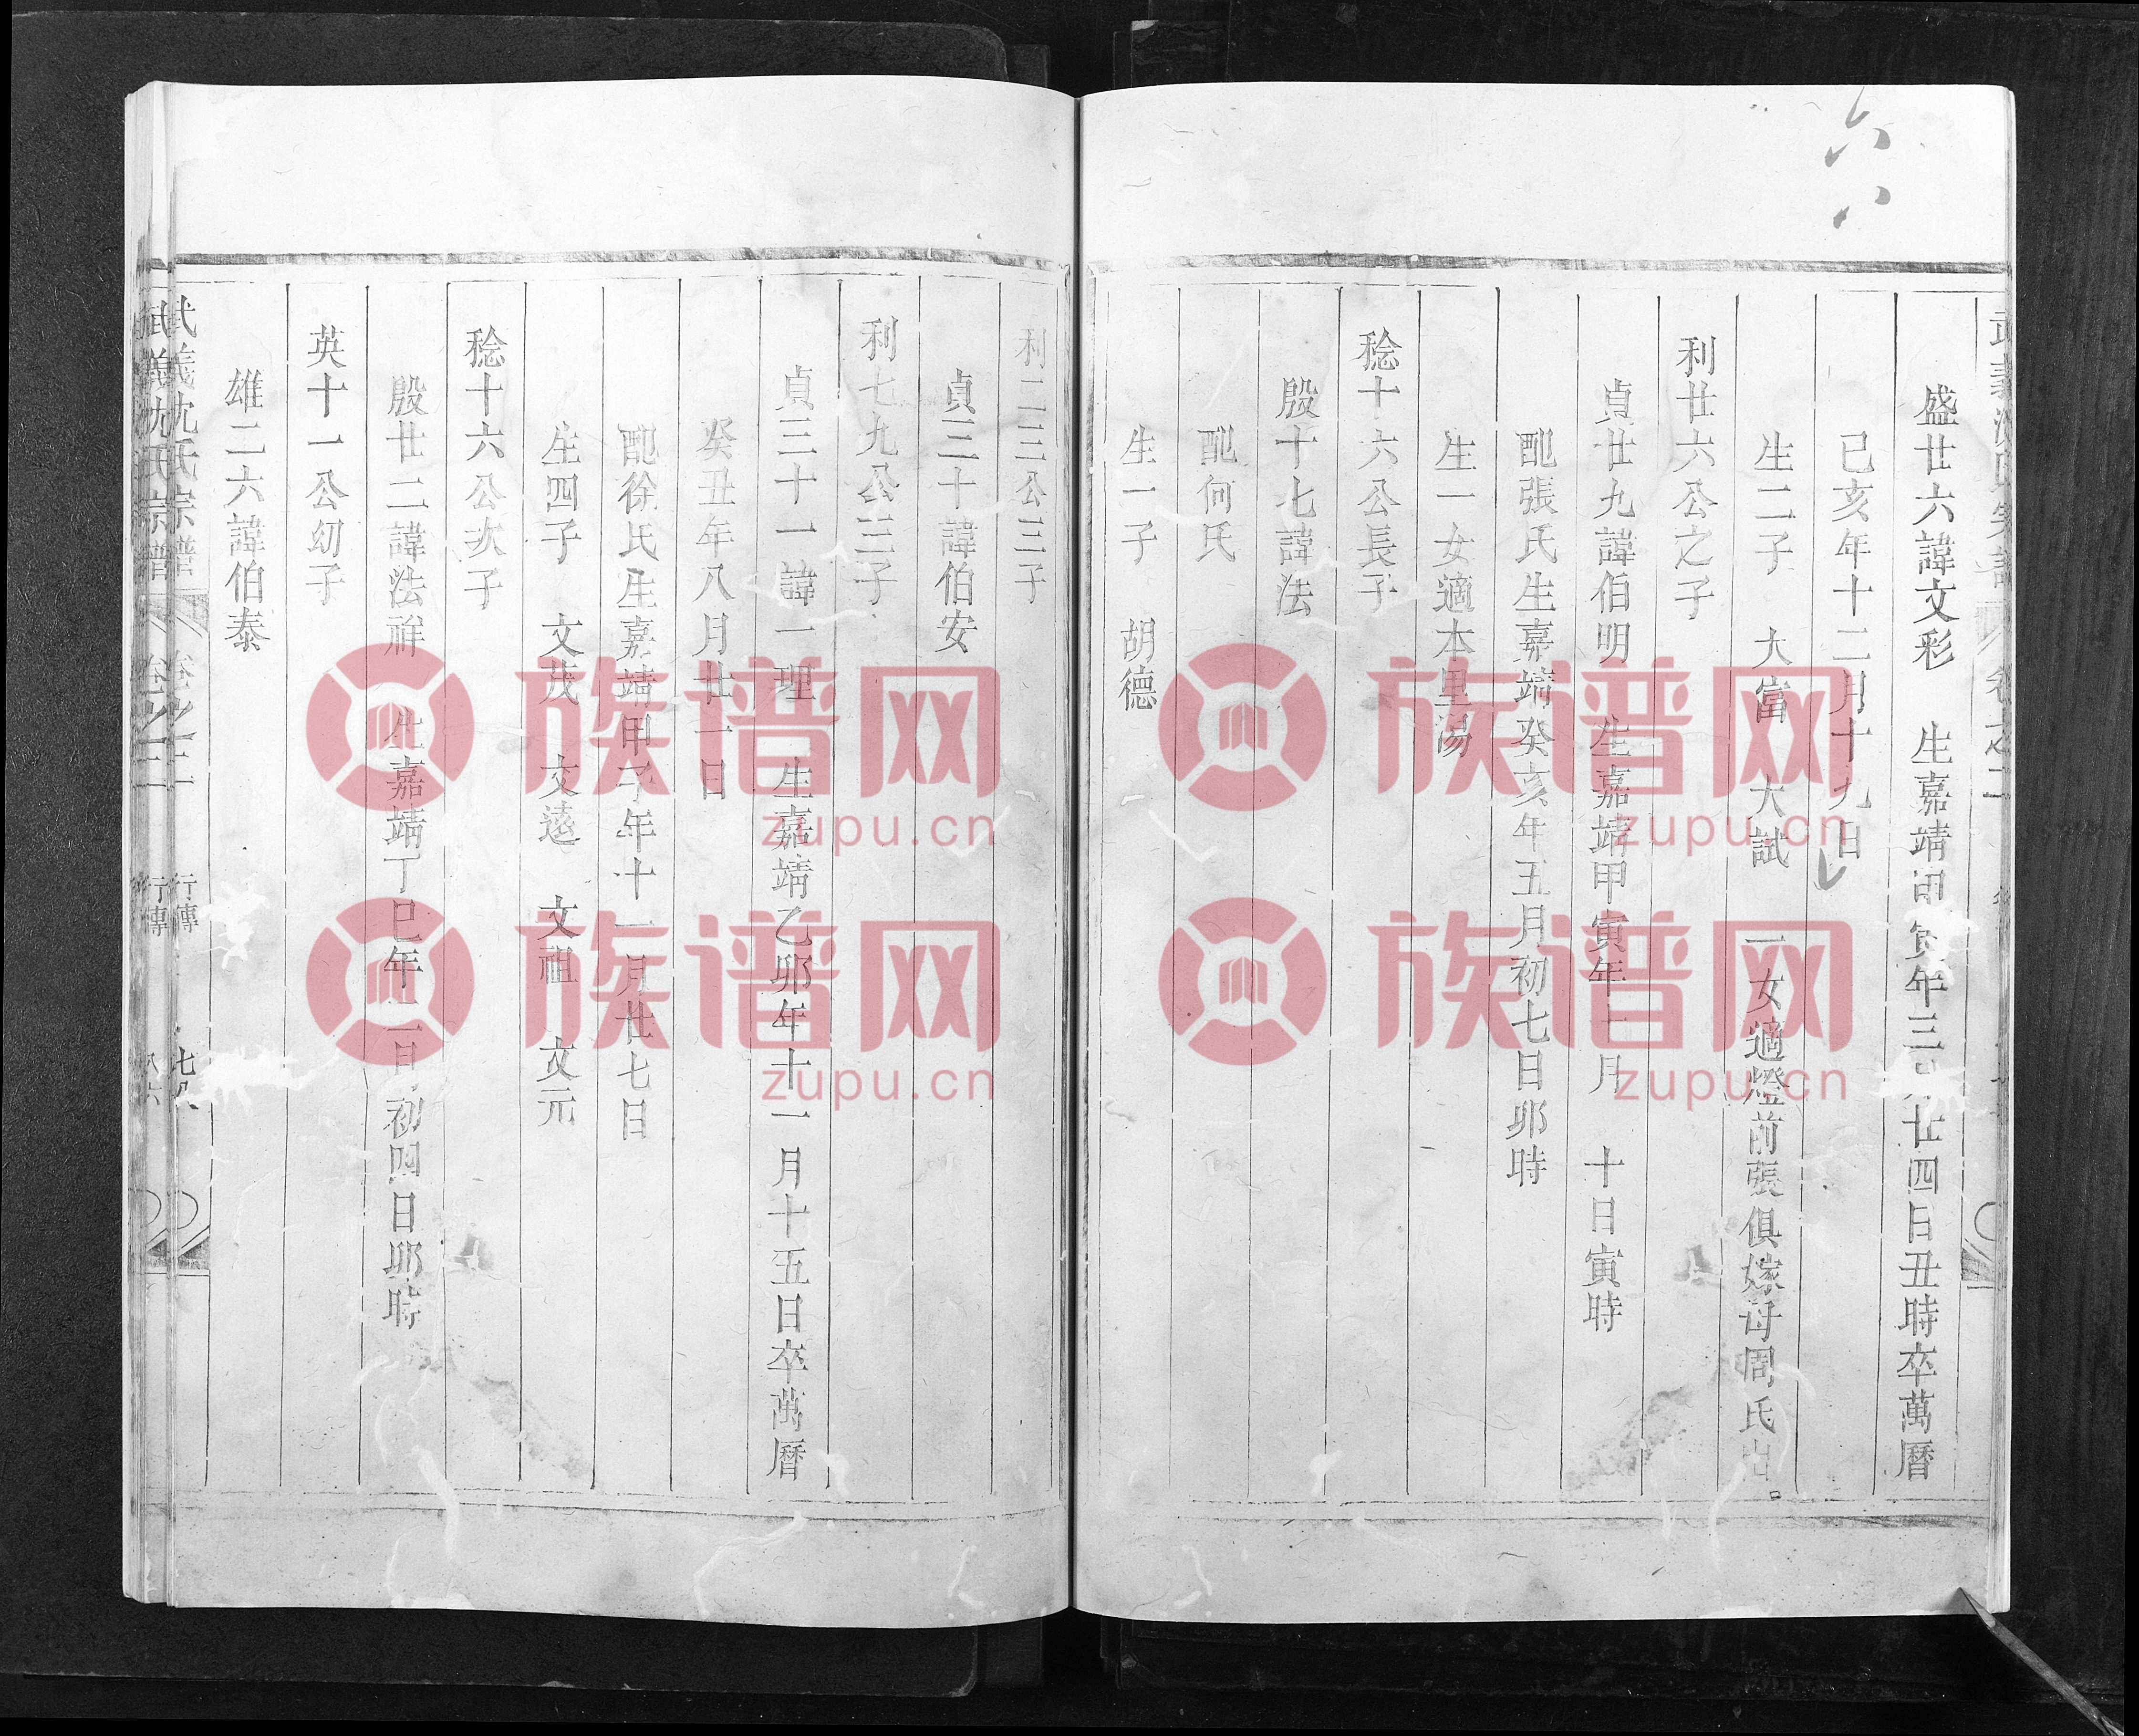 六八
盛廿六諱文彩 生嘉靖甲寅年三月廿四日丑時卒萬曆
己亥年十二月十九日
生二子 大富 大試 一女適燈前張俱嫁母周氏出。
利廿六公之子
貞廿九諱伯明 生嘉靖甲寅年 月 十日寅時
配張氏生嘉靖癸亥年五月初七日卯時
生一女適本里湯
稔十六公長子
殷十七諱法
配何氏
生一子 胡德
利二三公三子
貞三十諱伯安
利七九公三子
貞三十一諱一理 生嘉靖乙卯年十一月十五日卒萬曆
癸丑年八月廿一日
配徐氏生嘉靖甲子年十一月廿七日
生四子 文茂 文遠 文祖 文元
稔十六公次子
殷廿二諱法祥 生嘉靖丁巳年二月初四日卯時
英十一公幼子
雄二六諱伯泰
武義沈氏宗譜 卷之三 行傳 七八
武義沈氏宗譜 卷之三 行傳 八六
族谱网
zupu.cn
族谱网
zupu.cn
族谱网
zupu.cn
族谱网
zupu.cn